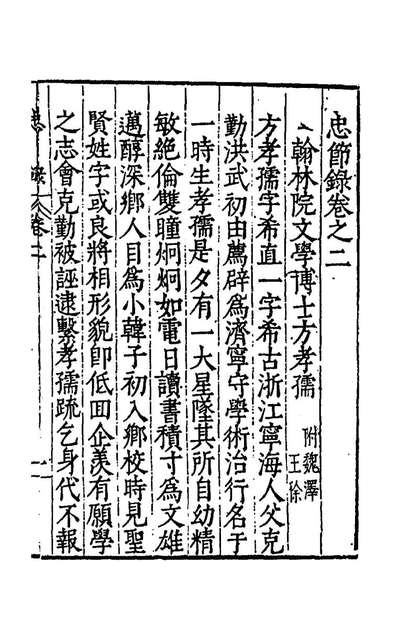 忠節錄卷之二
翰林院文學博士方孝孺 附魏澤
王稌
方孝孺字希直一字希古浙江寧海人父克
勤洪武初由薦辟為濟寧守學術治行名于
一時生孝孺是夕有一大星墜其所自幼精
敏絕倫雙瞳炯炯如電日讀書積寸為文雄
邁醇深鄉人目為小韓子初入鄉校時見聖
賢姓字或良將相形貌卽低回企羨有願學
之志會克勤被誣逮繫孝孺疏乞身代不報
卷二